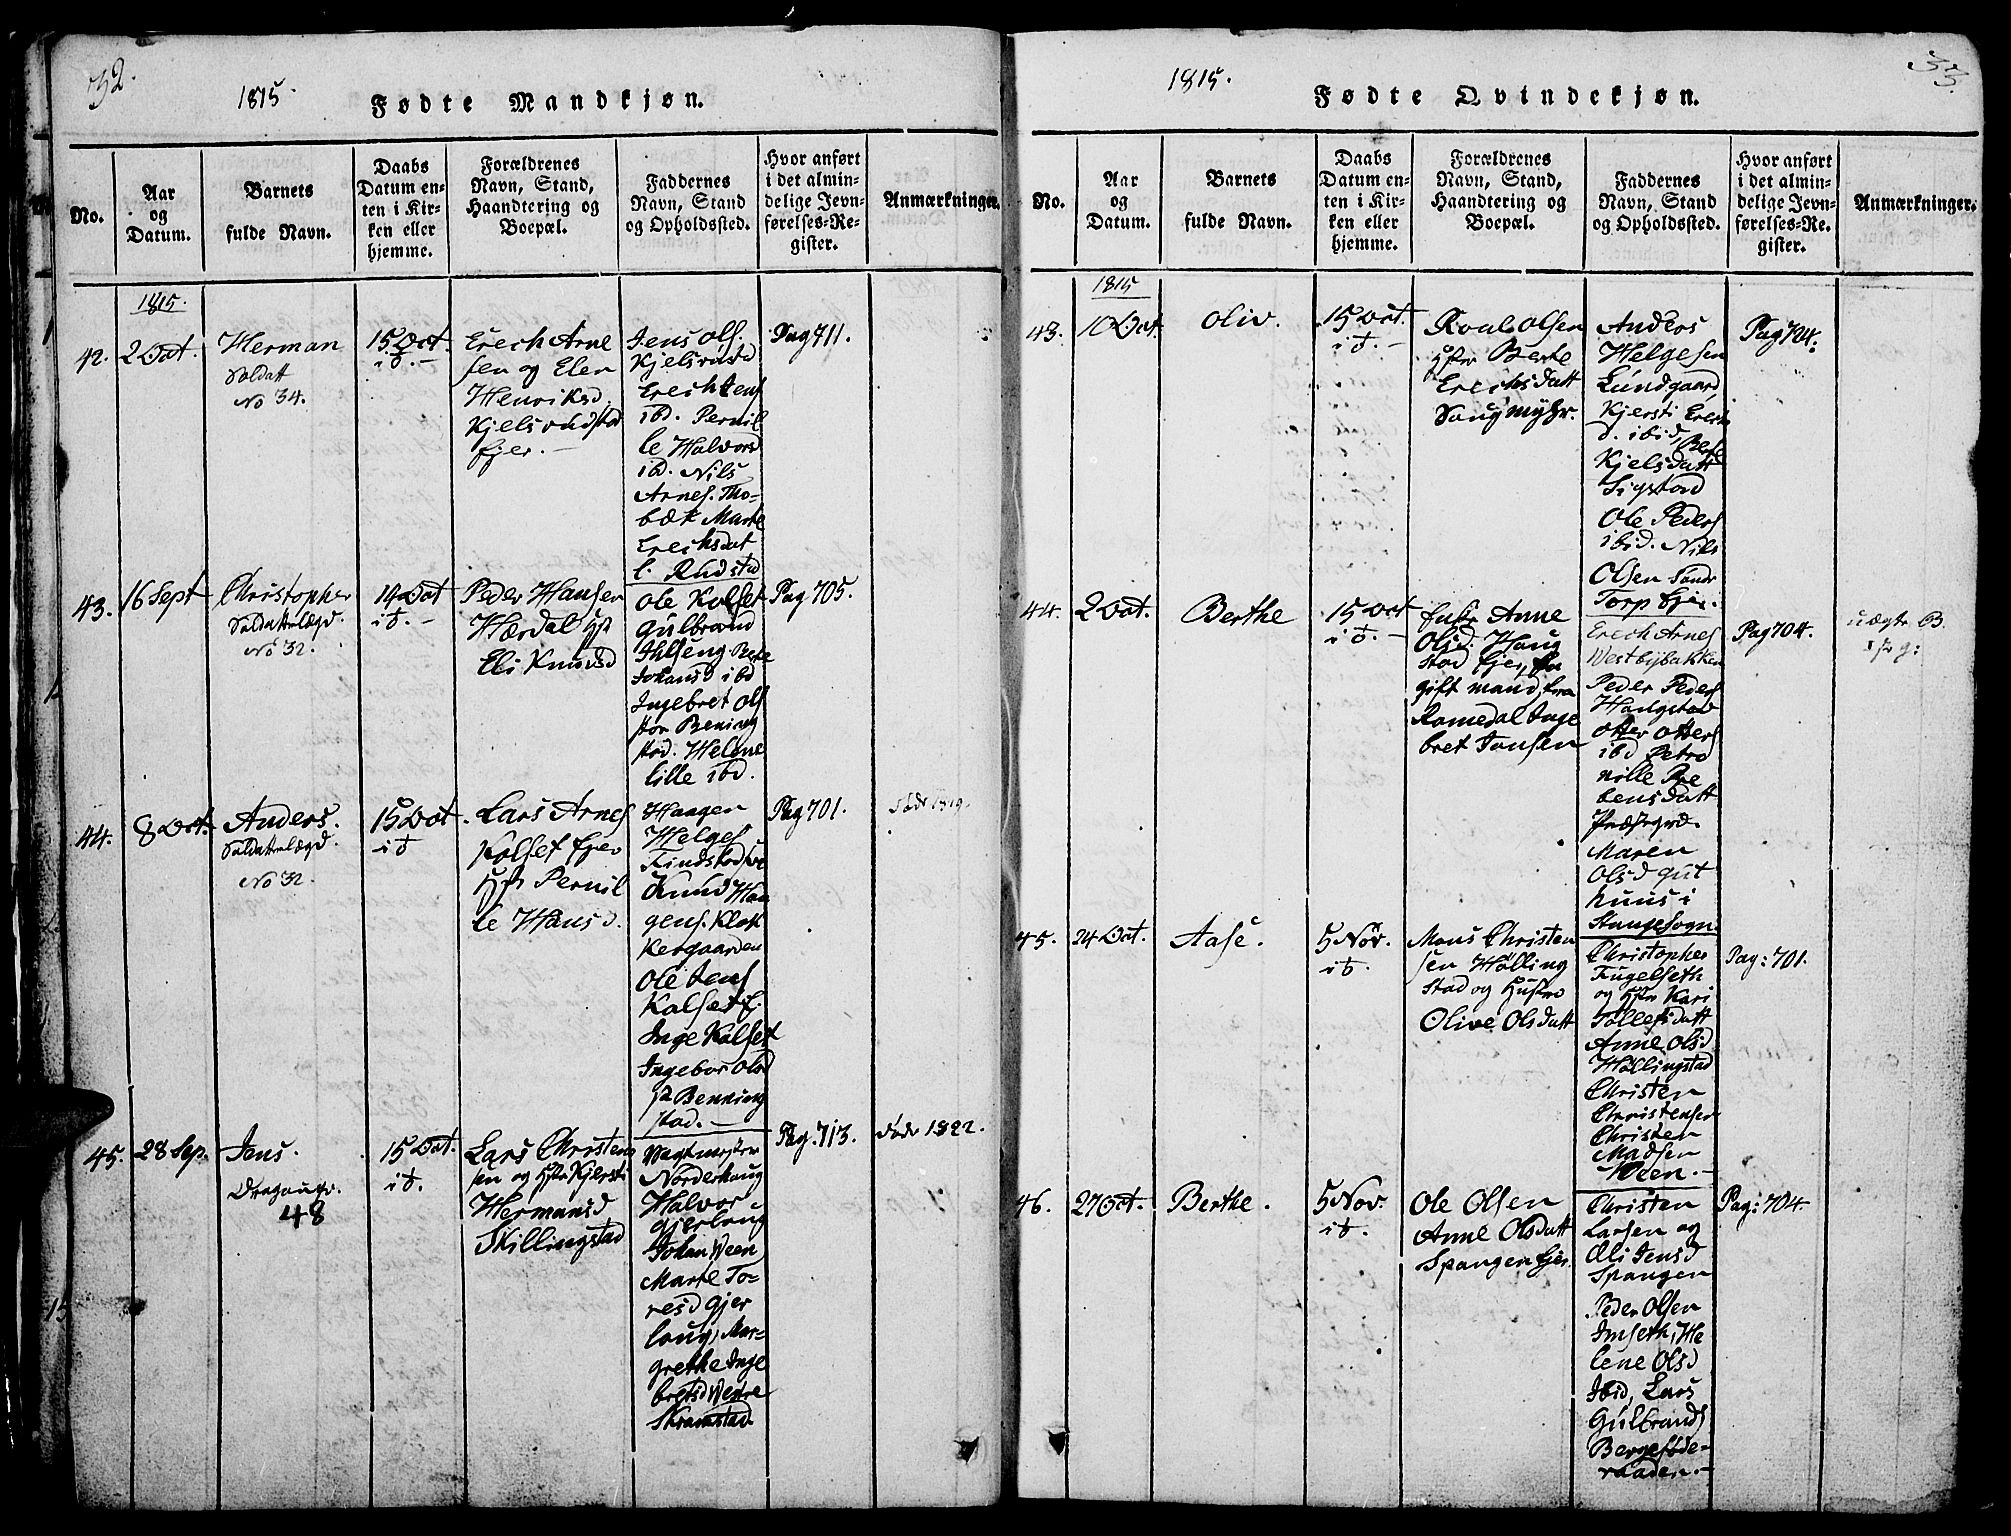 32.
1815.
Fødte Mandkjøn.
No.
Aar
og
Datum.
Barnets
fulde Navn.
Daabs
Datum en-
ten i Kir-
ken eller
hjemme.
Forældrenes
Navn, Stand,
Haandtering og
Boepæl.
Faddernes
Navn, Stand
og Opholdssted.
Hvor anført
i det almin-
delige Jevn-
førelses-Re-
gister.
Anmærkninger.
1815.
42.
2 Oct.
Herman
Soldatt
No 34.
15 Oct.
Erech Arne
sen og Elen
Henriksd.
Kjelsrudstad
Ejer.
Jens Ols.
Kjelsrustd
Erech Jens
ibd. Pernil
le Halvorsd
ibd. Nils
Arnes. Tho-
bæk Marte
Erechsdat
l. Rudstad
Pag 711.
43.
16 Sept
Christopher
Soldattelægd.
No 32.
14 Oct
Peder Hansen
Hærdal
Eli Knudsd
Ole Kolset
Gulbrand
Ihlseng Bete
Johansd ibd
Ingebret Ols
stor Bening
stad. Helene
lille ibd.
Pag 705.
44.
8 Oct.
Anders.
Soldattelægd.
No 32.
15 Oct.
Lars Arnes
Kolset Ejer
Hstr Pernil
le Hansd.
Haagen
Helges
Findstad
Knud Haa
gens. Klok
kergaarden
Ole Jens
Kolset E.
Inge Kolset
Ingebor Olsd
Benning
stad.
Pag 701.
døde 1819.
45.
28 Sep.
Jens.
48
15 Oct.
Lars Christen
sen og Hstr Kjersti
Hermansd
Skillingstad
Vagtmester
Norderhaug
Halvor
Gjerlaug
Johan Ween
Marte To-
resd Gjer
laug, Mar-
grethe Inge
bretsd Westre
Skramstad
Pag. 713.
døde 1822.
33.
1815.
Fødte Qvindekjøn.
No.
Aar
og
Datum.
Barnets
fulde Navn.
Daabs
Datum en-
ten i Kir-
ken eller
hjemme.
Forældrenes
Navn, Stand,
Haandtering og
Boepæl.
Faddernes
Navn, Stand
og Opholdssted.
Hvor anført
i det almin-
delige Jevn-
førelses-Re-
gister.
Anmærkninger.
1815
43.
10 Oct.
Oliv.
15 Oct.
Roal Olsen
Hstr Berte
Erechsdatt
Saugmyhr.
Anders
Helgesen
Lundgaard,
Kjersti Erech
d. ibid, Berte
Kjelsdatt
Sigstad
Ole Peders
ibid. Nils
Olsen Sandr
Torp Ejer.
Pag 704.
44.
2 Oct.
Berthe
15 Oct
Enkr Anne
Olsd. Haug
stad Ejer,
gift mand fra
Romedal Inge
bret Jonsen
Erech Arnes
Westbybakken
Peder Peders
Haugstad
Otter Otters
ibd Petro
nille Pre
bensdatt
Præstgrd.
Maren
Olsd Gut
huus i
Stange Sogn
Pag 704.
uægte B.
45.
24 Oct.
Aase.
5 Nov.
Mons Christen
sen Hølling
stad og Hustro
Olive Olsdatt
Christopher
Fugelseth
og Hstr Kari
Tollefsdatt
Anne Olsd
Høllingstad
Christen
Christensen
Christen
Madsen
Ween.
Pag: 701.
46.
27 Oct.
Berthe.
5 Nov.
Ole Olsen
Anne Olsdatt
Spangen Ejer
Christen
Larsen og
Eli Jensd
Spangen
Peder Olsen
Imseth, He
lene Olsd
Ibid, Lars
Gulbrands
Berge føde-
raaden.
Pag: 704.